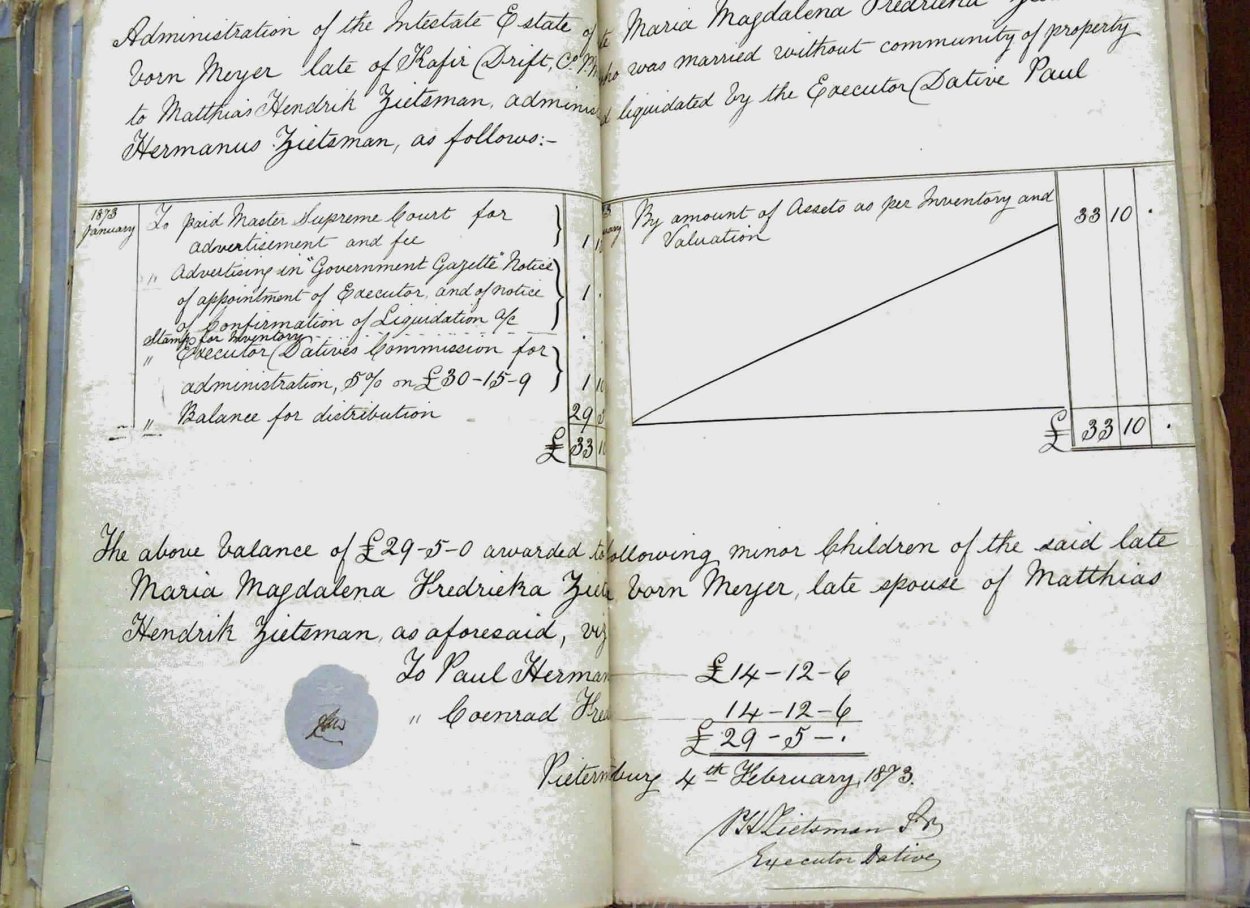 Administration of the Intestate Estate of Maria Magdalena Fredrieka
born Meyer late of Kafir Drift, who was married without community of property
to Matthias Hendrik Zietsman, liquidated by the Executor Dative Paul
Hermanus Zietsman, as follows:-
1873
January
To paid Master Supreme Court for
advertisement and fee 1
" Advertising in "Government Gazette" Notice
of appointment of Executor, and of notice
of Confirmation of Liquidation a/c 1 .
Stamp for Inventory
" Executor Dative's Commission for
administration, 5% on £30-15-9 1
" Balance for distribution 29
£ 33
By amount of Assets as per Inventory and
Valuation 33 10 .
£ 33 10 .
The above balance of £29-5-0 awarded to following minor Children of the said late
Maria Magdalena Fredrieka born Meyer, late spouse of Matthias
Hendrik Zietsman, as aforesaid, viz
To Paul £14-12-6
" Coenrad 14-12-6
£29-5-.
4th February, 1873.
P H Zietsman
Executor Dative